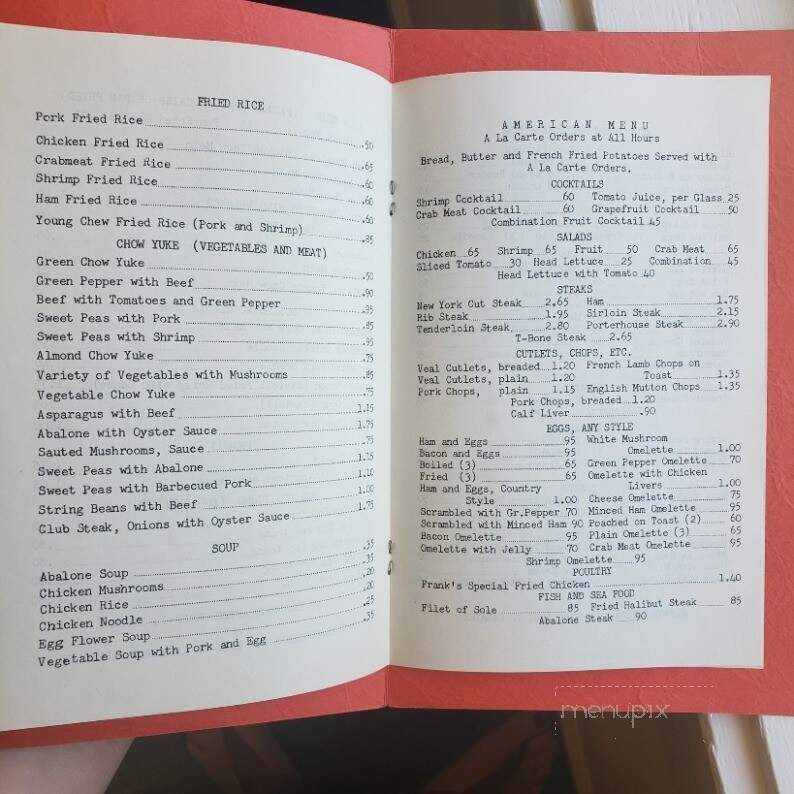 FRIED RICE
Pork Fried Rice .50
Chicken Fried Rice .65
Crabmeat Fried Rice .60
Shrimp Fried Rice .60
Ham Fried Rice .60
Young Chew Fried Rice (Pork and Shrimp) .85
CHOW YUKE (VEGETABLES AND MEAT)
Green Chow Yuke
Green Pepper with Beef .90
Beef with Tomatoes and Green Pepper .95
Sweet Peas with Pork .85
Sweet Peas with Shrimp .95
Almond Chow Yuke .75
Variety of Vegetables with Mushrooms .85
Vegetable Chow Yuke .75
Asparagus with Beef 1.15
Abalone with Oyster Sauce 1.75
Sauted Mushrooms, Sauce .75
Sweet Peas with Abalone 1.15
Sweet Peas with Barbecued Pork 1.10
String Beans with Beef 1.00
Club Steak, Onions with Oyster Sauce 1.75
SOUP
Abalone Soup .35
Chicken Mushrooms .35
Chicken Rice .20
Chicken Noodle .20
Egg Flower Soup .25
Vegetable Soup with Pork and Egg .35
AMERICAN MENU
A La Carte Orders at All Hours
Bread, Butter and French Fried Potatoes Served with
A La Carte Orders.
COCKTAILS
Shrimp Cocktail 60 Tomato Juice, per Glass 25
Crab Meat Cocktail 60 Grapefruit Cocktail 50
Combination Fruit Cocktail 45
SALADS
Chicken 65 Shrimp 65 Fruit 50 Crab Meat 65
Sliced Tomato 30 Head Lettuce 25 Combination 45
Head Lettuce with Tomato 40
STEAKS
New York Cut Steak 2.65 Ham 1.75
Rib Steak 1.95 Sirloin Steak 2.15
Tenderloin Steak 2.80 Porterhouse Steak 2.90
T-Bone Steak 2.65
CUTLETS, CHOPS, ETC.
Veal Cutlets, breaded 1.20 French Lamb Chops on
Veal Cutlets, plain 1.20 Toast 1.35
Pork Chops, plain 1.15 English Mutton Chops 1.35
Pork Chops, breaded 1.20
Calf Liver .90
EGGS, ANY STYLE
Ham and Eggs 95 White Mushroom
Bacon and Eggs 95 Omelette 1.00
Boiled (3) 65 Green Pepper Omelette 70
Fried (3) 65 Omelette with Chicken
Ham and Eggs, Country Livers 1.00
Style 1.00 Cheese Omelette 75
Scrambled with Gr.Pepper 70 Minced Ham Omelette 95
Scrambled with Minced Ham 90 Poached on Toast (2) 60
Bacon Omelette 95 Plain Omelette (3) 65
Omelette with Jelly 70 Crab Meat Omelette 95
Shrimp Omelette 95
POULTRY
Frank's Special Fried Chicken 1.40
FISH AND SEA FOOD
Filet of Sole 85 Fried Halibut Steak 85
Abalone Steak 90
menupix